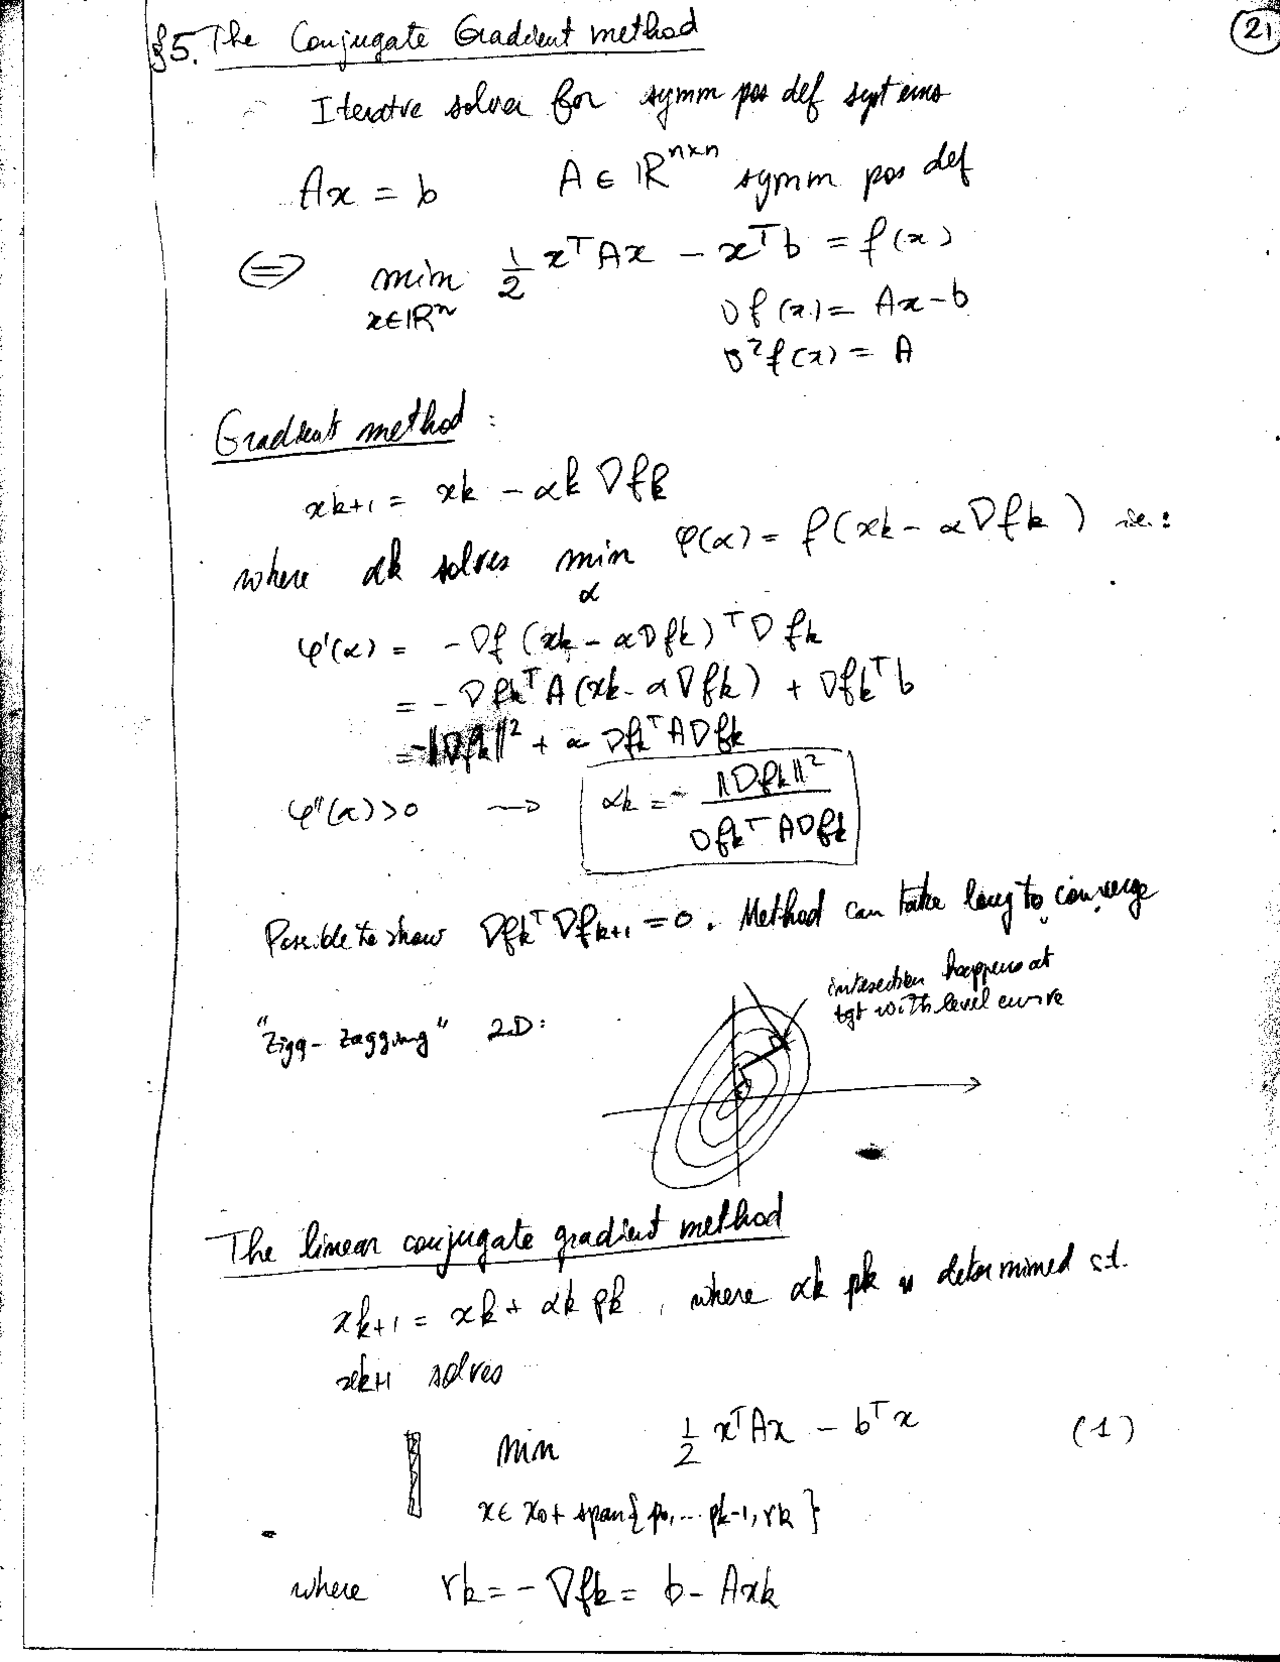 §5. The Conjugate Gradient method
21
Iterative solver for symm pos def systems
Ax = b    A ∈ ℝⁿˣⁿ symm pos def
⟺ min 1/2 xᵀAx - xᵀb = f(x)
x∈ℝⁿ
∇f(x) = Ax-b
∇²f(x) = A
Gradient method :
xk+1 = xk - αk ∇fk
where αk solves min φ(α) = f(xk - α∇fk) ie:
α
φ'(α) = -∇f(xk - α∇fk)ᵀ∇fk
= -∇fkᵀA(xk - α∇fk) + ∇fkᵀb
= -‖∇fk‖² + α ∇fkᵀA∇fk
φ''(α)>0 → αk = ‖∇fk‖² / ∇fkᵀA∇fk
Possible to show ∇fkᵀ∇fk+1 = 0. Method can take long to converge
intersection happens at
tgt with level curve
"Zigg-Zagging" 2D:
The linear conjugate gradient method
xk+1 = xk + αk pk, where αk pk is determined s.t.
xk+1 solves
min 1/2 xᵀAx - bᵀx (1)
x∈ x0+ span{p0,... pk-1, rk}
where rk = -∇fk = b - Axk